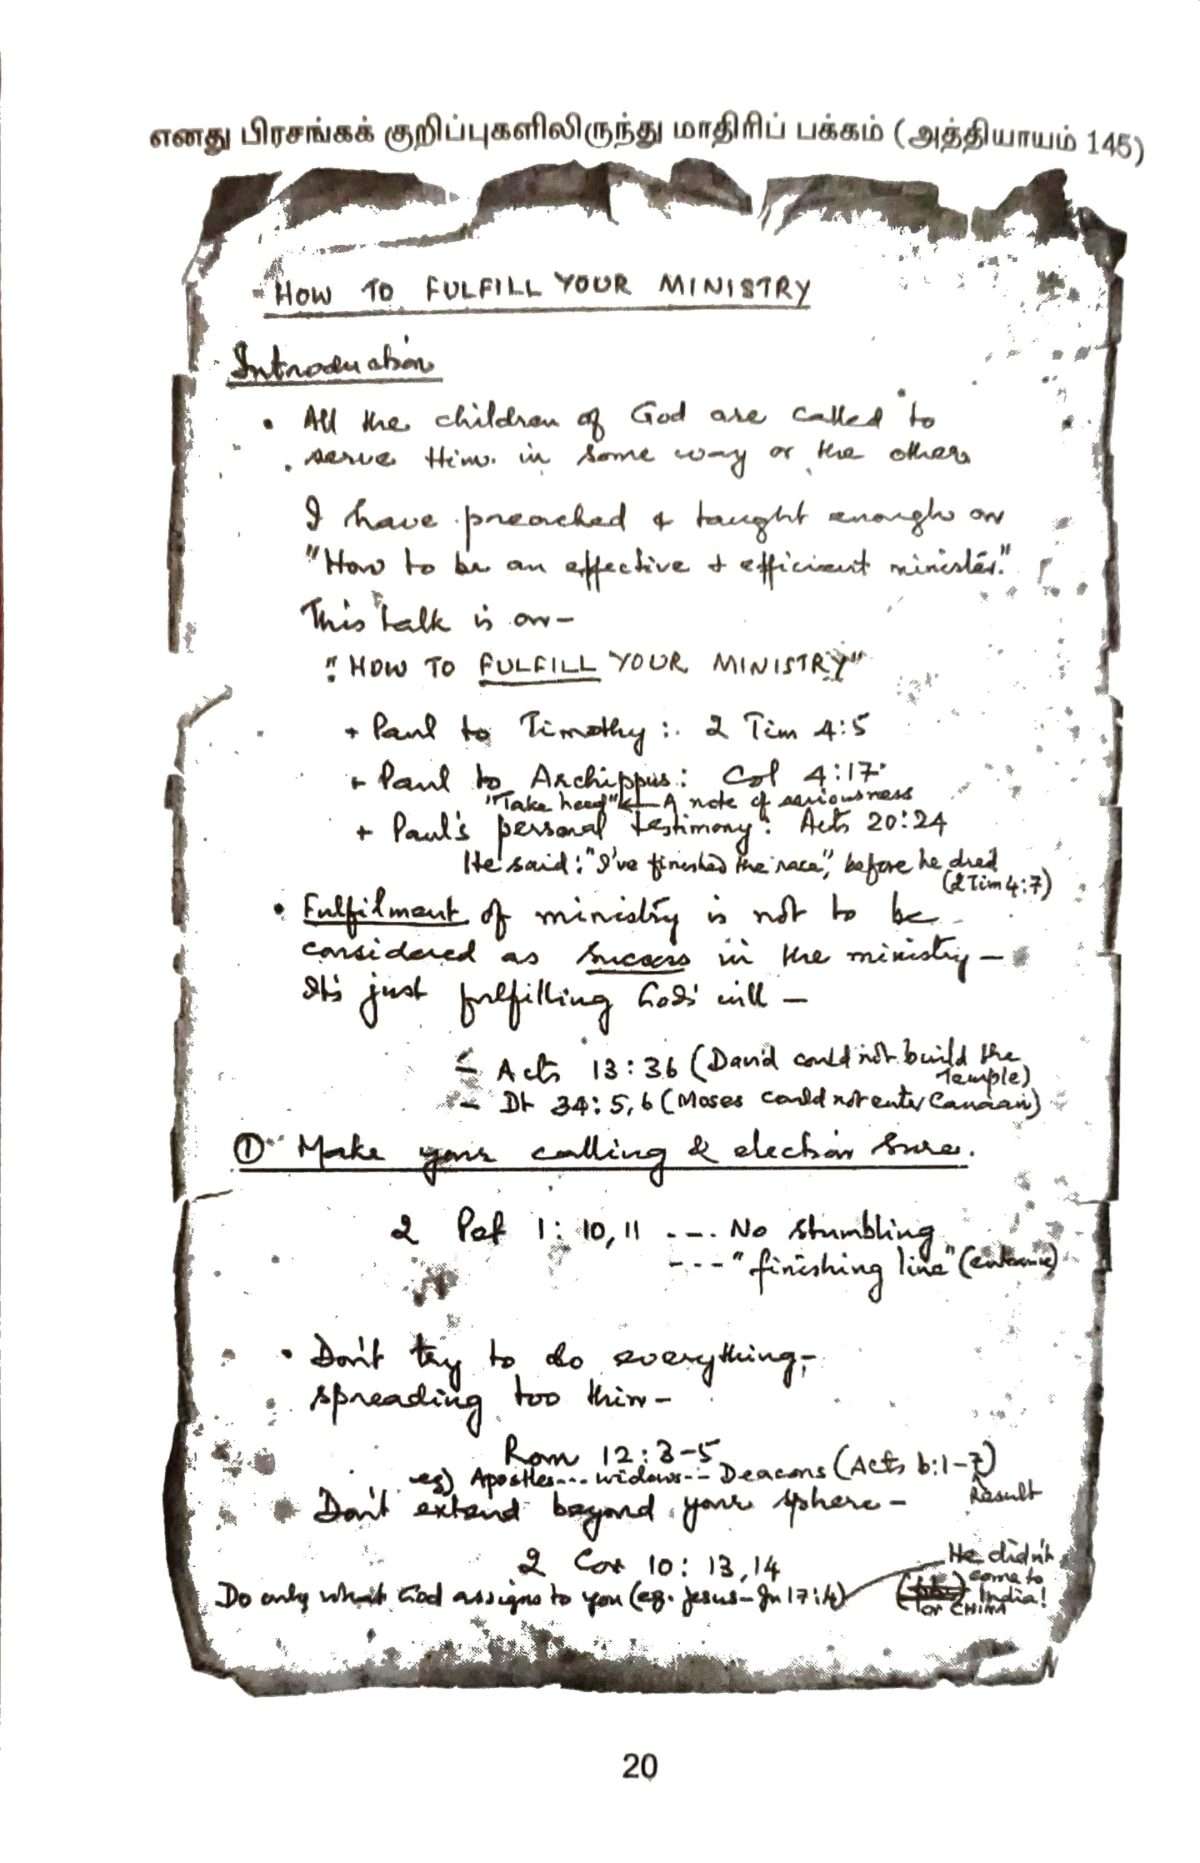 எனது பிரசங்கக் குறிப்புகளிலிருந்து மாதிரிப் பக்கம் (அத்தியாயம் 145)
HOW TO FULFILL YOUR MINISTRY
Introduction
• All the children of God are called to
serve Him in some way or the other
I have preached & taught enough on
"How to be an effective & efficient minister."
This talk is on -
"HOW TO FULFILL YOUR MINISTRY"
+ Paul to Timothy : 2 Tim 4:5
+ Paul to Archippus : Col 4:17
"Take heed" ← A note of seriousness
+ Paul's personal testimony : Acts 20:24
He said : "I've finished the race," before he died
(2 Tim 4:7)
• Fulfilment of ministry is not to be
considered as success in the ministry -
It's just fulfilling God's will -
- Acts 13:36 (David could not build the
Temple)
- Dt 34:5,6 (Moses could not enter Canaan)
① Make your calling & election sure.
2 Pet 1:10,11 --- No stumbling
--- "finishing line" (entrance)
• Don't try to do everything,-
spreading too thin -
Rom 12:3-5
eg) Apostles... widows... Deacons (Acts 6:1-7)
Result
Don't extend beyond your sphere -
2 Cor 10:13,14
He didn't
come to
India!
or CHINA
Do only what God assigns to you (eg. Jesus - Jn 17:4)
20